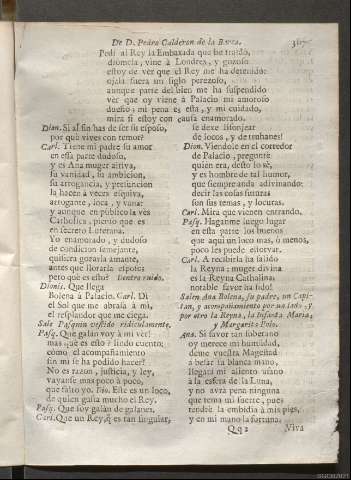 De D. Pedro Calderon de la Barca. 307
Pedi al Rey la Embaxada que he traido,
diomela, vine à Londres, y gozoso
estoy de ver que el Rey me ha detenido:
ojala fuera un siglo perezoso,
aunque parte del bien me ha suspendido
ver que oy viene à Palacio mi amoroso
dueño; mi pena es esta, y mi cuidado,
mira si estoy con causa enamorado.
Dion. Si al fin has de ser su esposo,
por què vives con temor?
Carl. Tiene mi padre su amor
en esta parte dudoso,
y es Ana muger altiva,
su vanidad, su ambicion,
su arrogancia, y presuncion
la hacen à veces esquiva,
arrogante, loca, y vana:
y aunque en publico la vès
Catholica, pienso que es
en secreto Luterana.
Yo enamorado, y dudoso
de condicion semejante,
quisiera gozarla amante,
antes que llorarla esposo:
pero què es esto? Dentro ruido.
Dionis. Que llega
Bolena à Palacio. Carl. Di
el Sol que me abrasa à mi,
el resplandor que me ciega.
Sale Pasquin vestido ridiculamente.
Pasq. Que galàn voy à mi vèr!
mas què es esto? lindo cuento;
còmo el acompañamiento
sin mi se ha podido hacer?
No es razon, justicia, y ley,
vayanse mas poco à poco,
que falto yo. Dio. Este es un loco,
de quien gusta mucho el Rey.
Pasq. Que soy galàn de galanes.
Carl. Que un Rey, q̃ es tan singular,
se dexe lisonjear
de locos, y de truhanes!
Dion. Viendole en el corredor
de Palacio, preguntè
quien era, desto lo sè,
y es hombre de tal humor,
que siempre anda adivinando:
decir las cosas futuras
son sus temas, y locuras.
Carl. Mira que vienen entrando.
Pasq. Haganme luego lugar
en esta parte los buenos
que aqui un loco mas, ò menos,
poco les puede estorvar.
Carl. A recibirla ha salido
la Reyna: muger divina
es la Reyna Cathalina:
notable favor ha sido!
Salen Ana Bolena, su padre, un Capitan,
y acompañamiento por un lado, y
por otro la Reyna, la Infanta Maria,
y Margarita Polo.
Ana. Si favor tan soberano
oy merece mi humildad,
deme vuestra Magestad
à besar su blanca mano,
llegarà mi aliento ufano
à la esfera de la Luna,
y no avrà pena ninguna
que tema mi suerte, pues
tendrè la embidia à mis pies,
y en mi mano la fortuna.
Qq 2 Viva